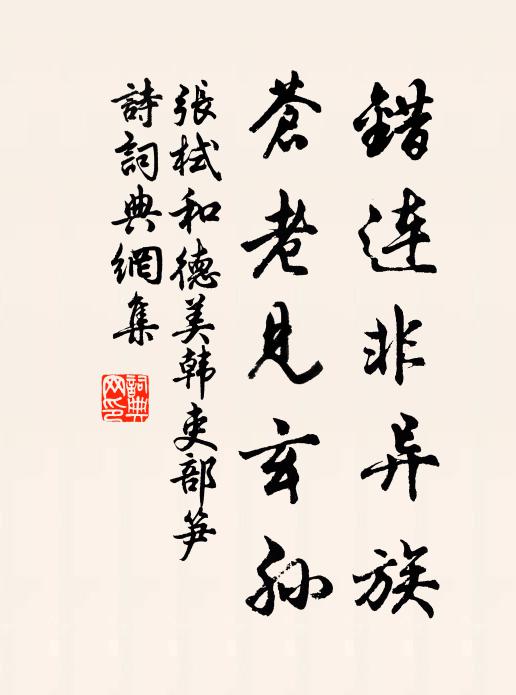 錯連非异族
蒼老見玄孙
張栻和德美韩吏部笋
詩詞典網集
詞典
网印